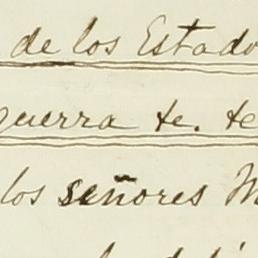 de los Estado
guerra te. te
los señores M